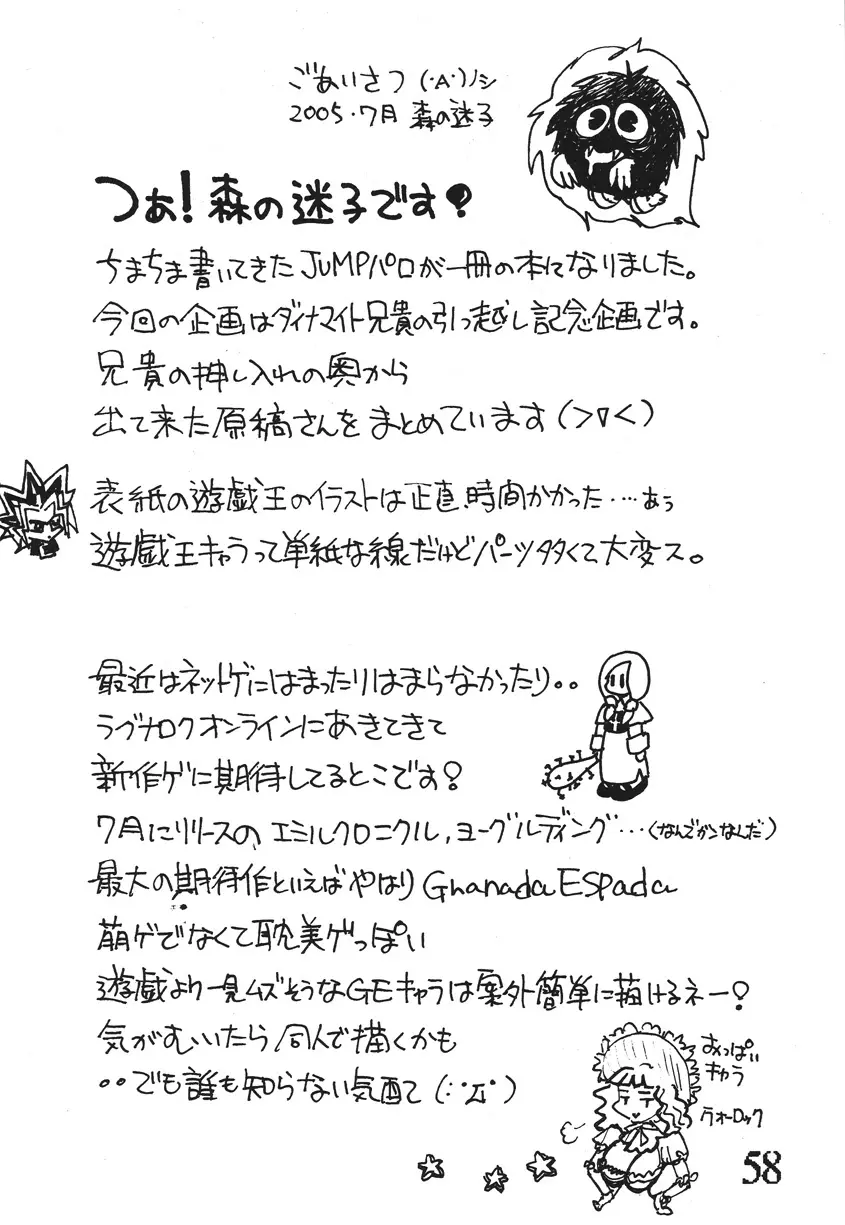 ごあいさつ (･A･)ノシ
2005・7月 森の迷子
つぁ!森の迷子です?
ちまちま書いてきたJUMPパロが一冊の本になりました。
今回の企画はダイナマイト兄貴の引っ越し記念企画です。
兄貴の押し入れの奥から
出て来た原稿さんをまとめています(>∇<)
表紙の遊戯王のイラストは正直時間かかった‥‥あぅ
遊戯王キャラって単紙な線だけどパーツ多くて大変ス。
最近はネットゲにはまったりはまらなかったり。。
ラグナロクオンラインにあきてきて
新作ゲに期待してるとこです?
7月にリリースの、エミルクロニクル,ヨーグルディング…(なんでかんなんだ)
最大の期待作といえばやはりGnanada ESpada
萌ゲでなくて耽美ゲっぽい
遊戯より一見ムズそうなGEキャラは案外簡単に描けるネー?
気がむいたら同人で描くかも
••でも誰も知らない気配て(;゚Д゚)
おっぱい
キャラ
ウォーロック
58